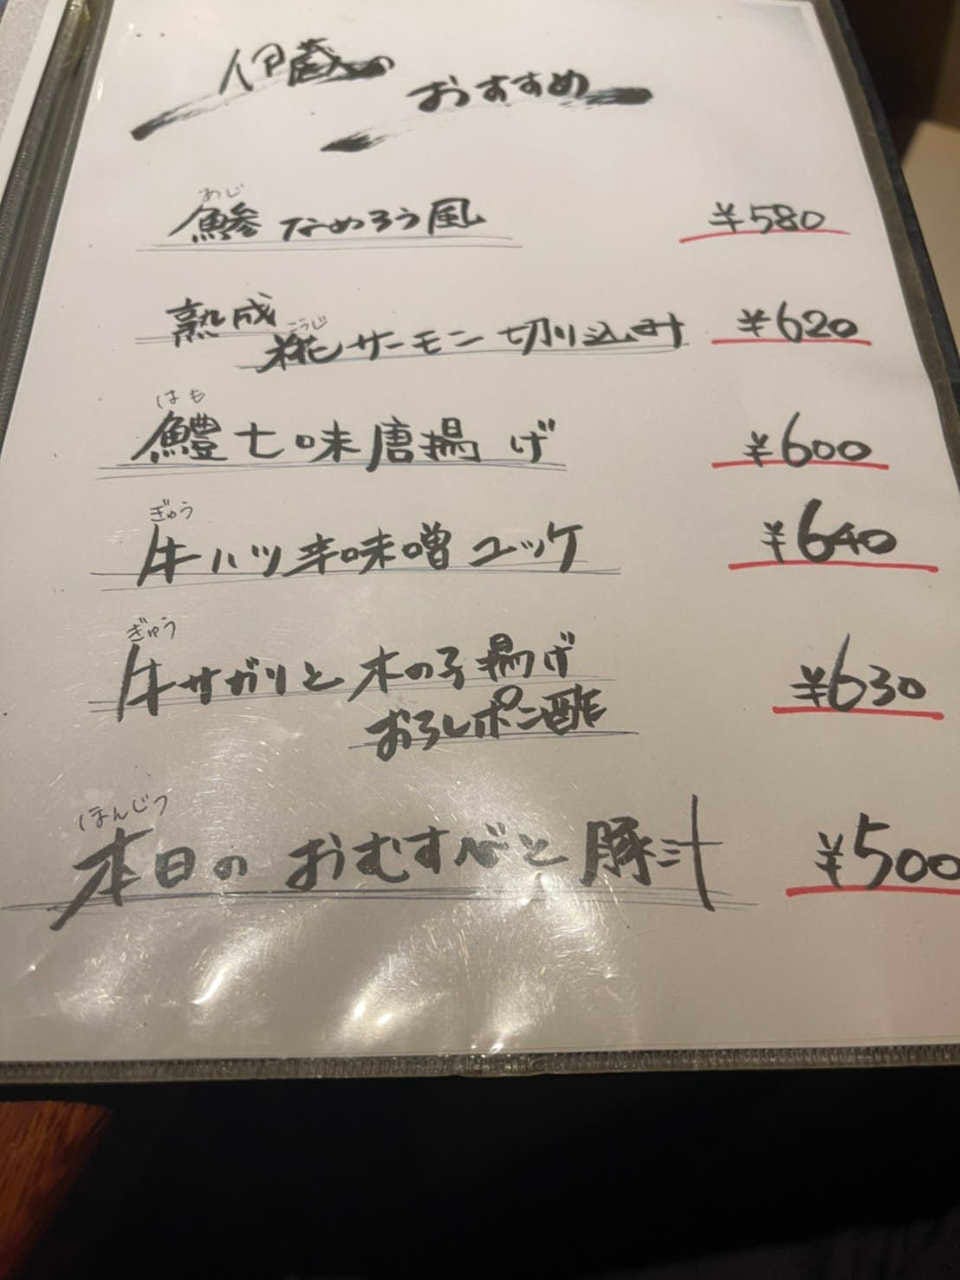 伊蔵の
おすすめ
あじ
鯵 なめろう風 ¥580
熟成
こうじ
糀サーモン 切り込み ¥620
はも
鱧 七味唐揚げ ¥600
ぎゅう
牛ハツ辛味噌ユッケ ¥640
ぎゅう
牛サガリと木の子揚げ ¥630
おろしポン酢
ほんじつ
本日の おむすびと豚汁 ¥500